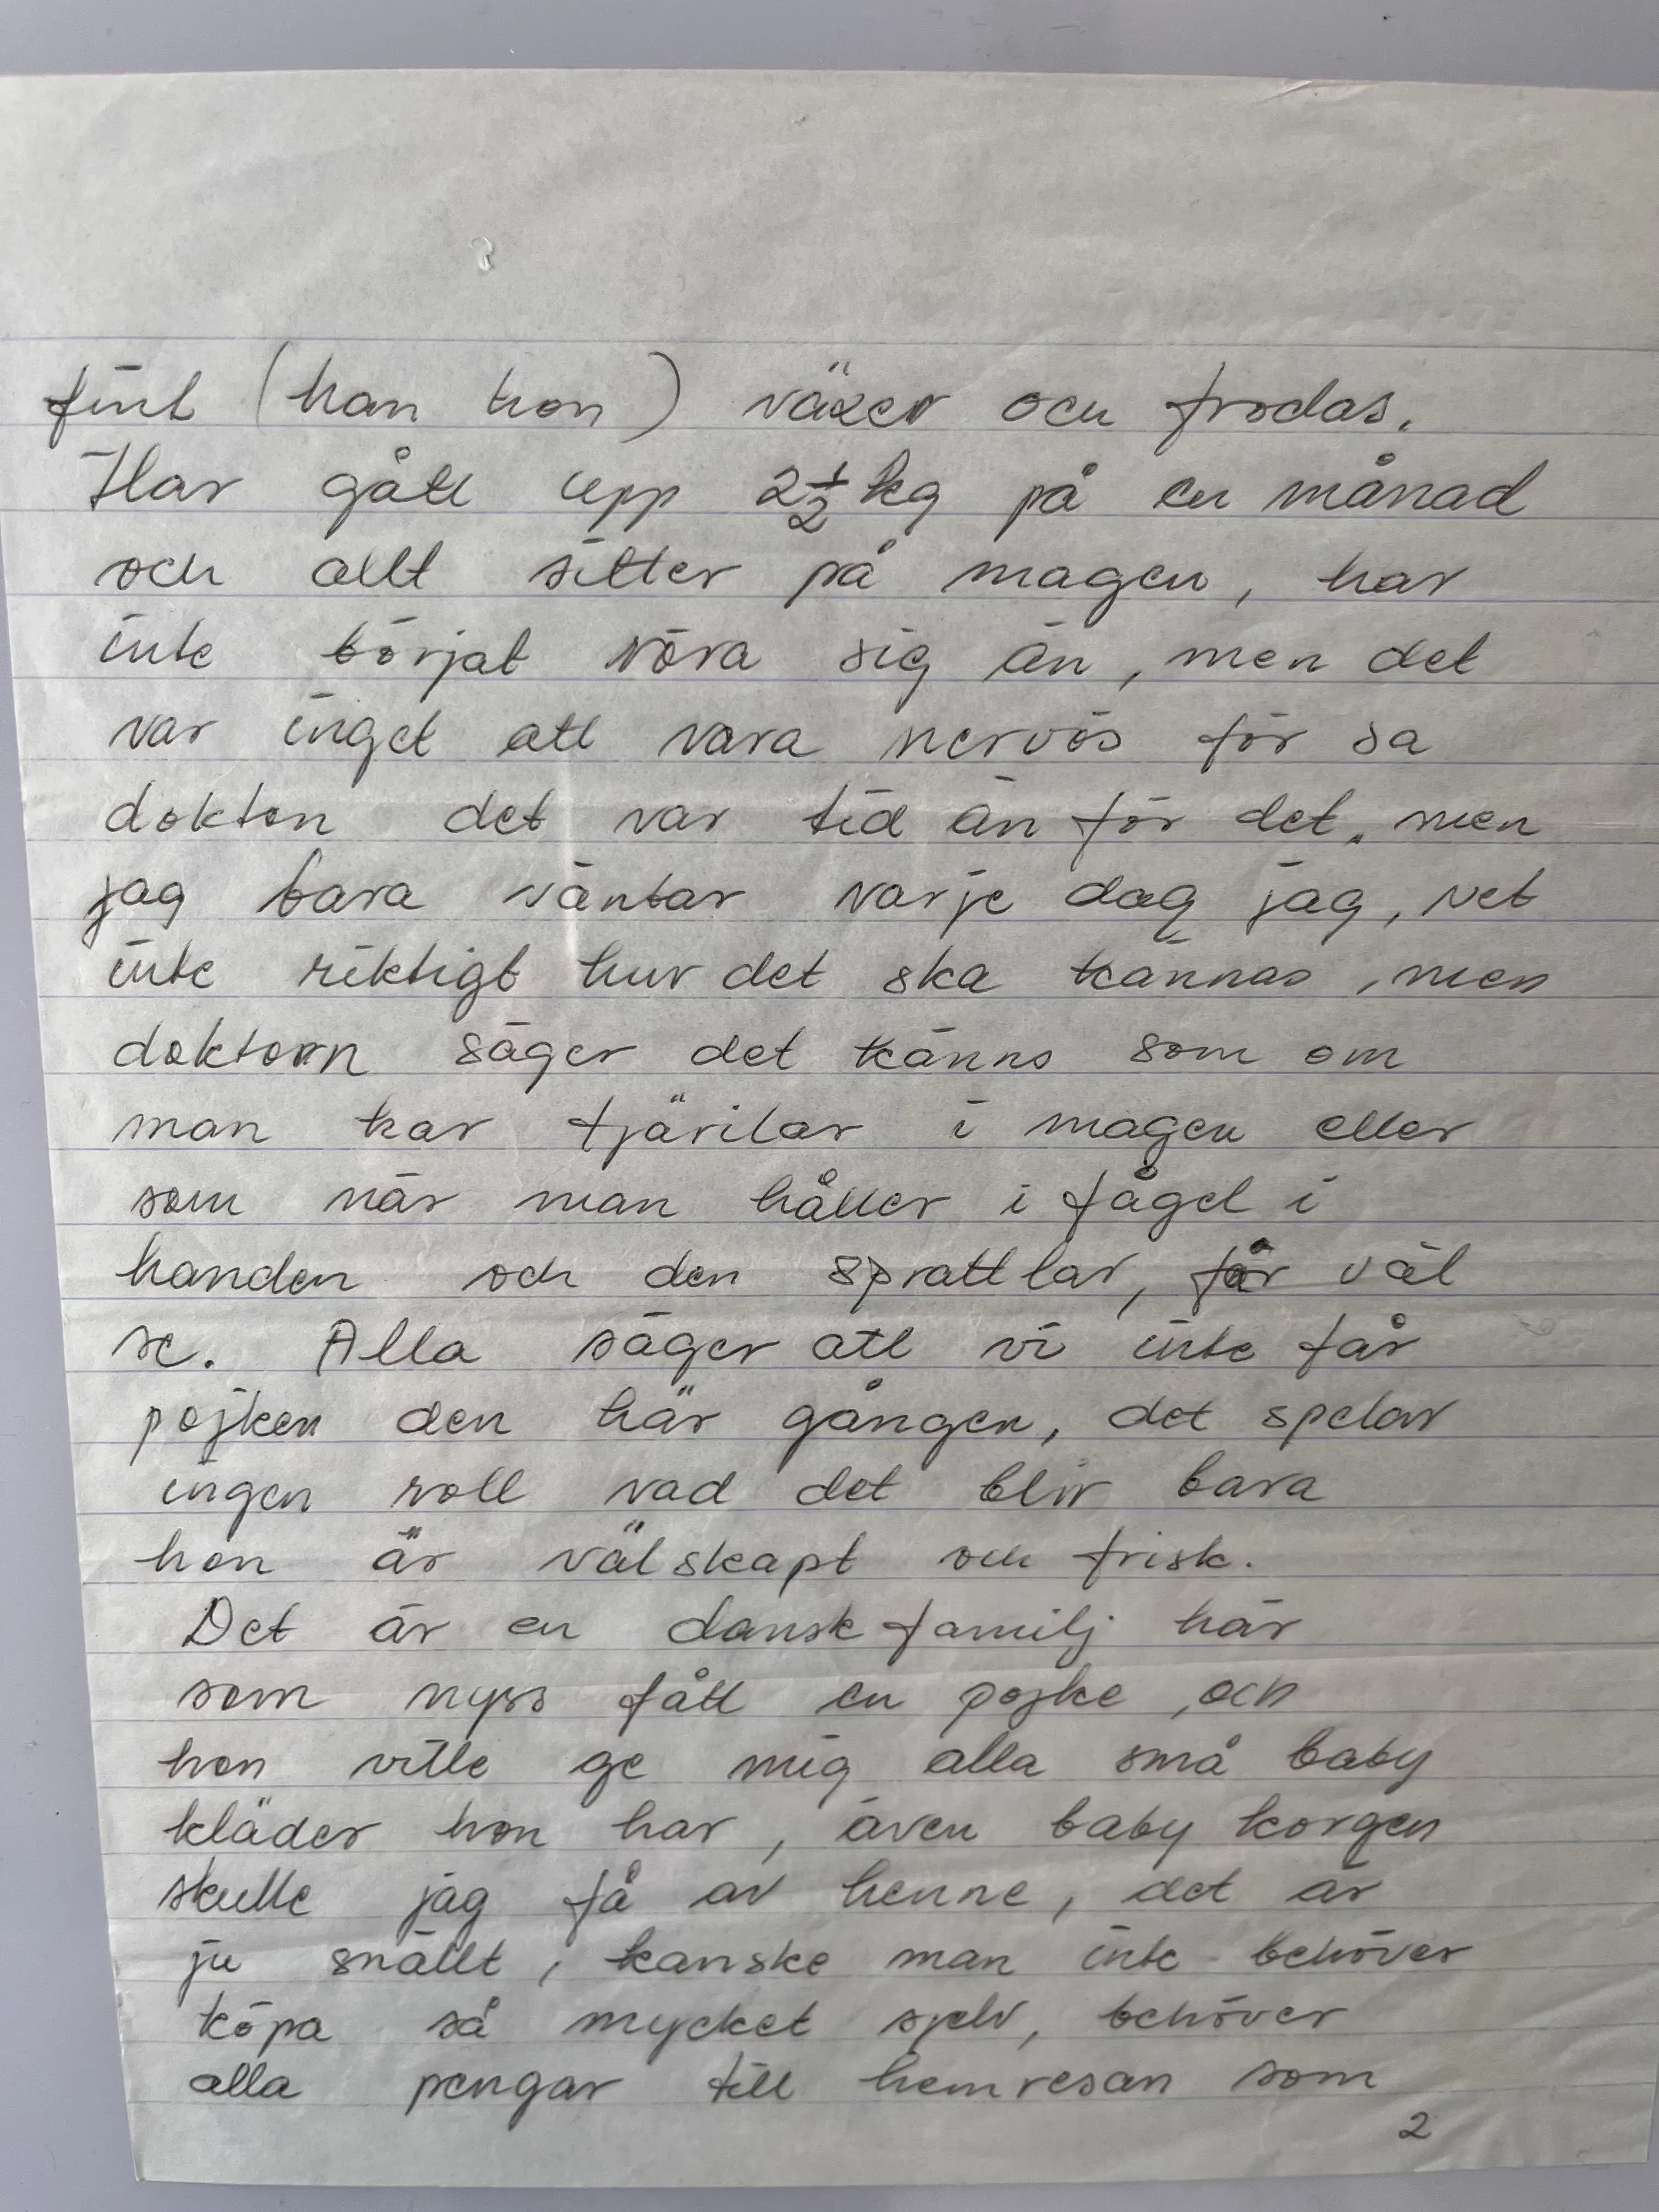 fint (han hon) växer och frodas.
Har gått upp 2½ kg på en månad
och allt sitter på magen, har
inte börjat röra sig än, men det
var inget att vara nervös för sa
dokton det var tid än för det, men
jag bara väntar varje dag jag, vet
inte riktigt hur det ska kännas, men
doktorn säger det känns som om
man har fjärilar i magen eller
som när man håller i fågel i
handen och den sprattlar, får väl
se. Alla säger att vi inte får
pojken den här gången, det spelar
ingen roll vad det blir bara
hon är välskapt och frisk.
Det är en dansk familj här
som nyss fått en pojke, och
hon ville ge mig alla små baby
kläder hon har, även baby korgen
skulle jag få av henne, det är
ju snällt, kanske man inte behöver
köpa så mycket sjelv, behöver
alla pengar till hemresan som
2